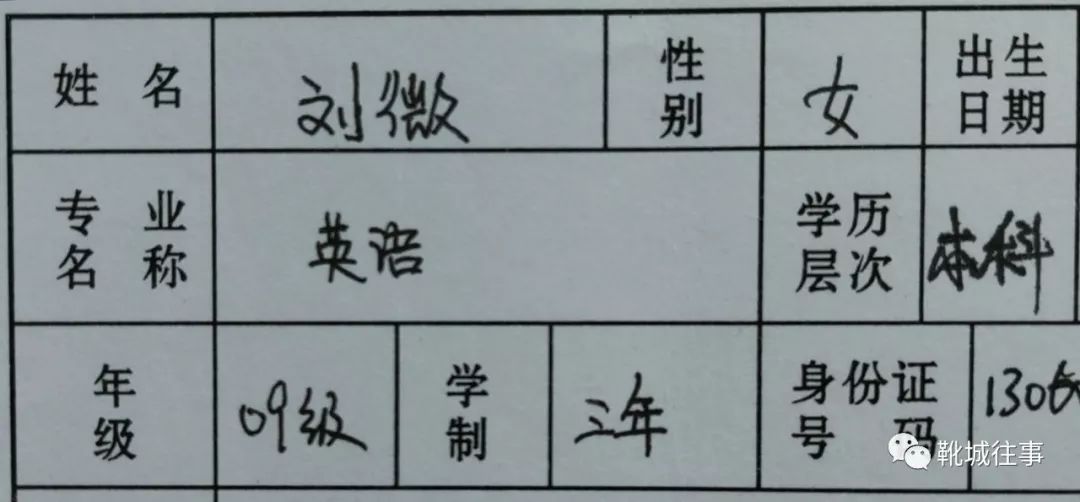 姓 名 刘微 性别 女 出生日期
专业名称 英语 学历层次 本科
年级 09级 学制 三年 身份证号码 130
靴城往事